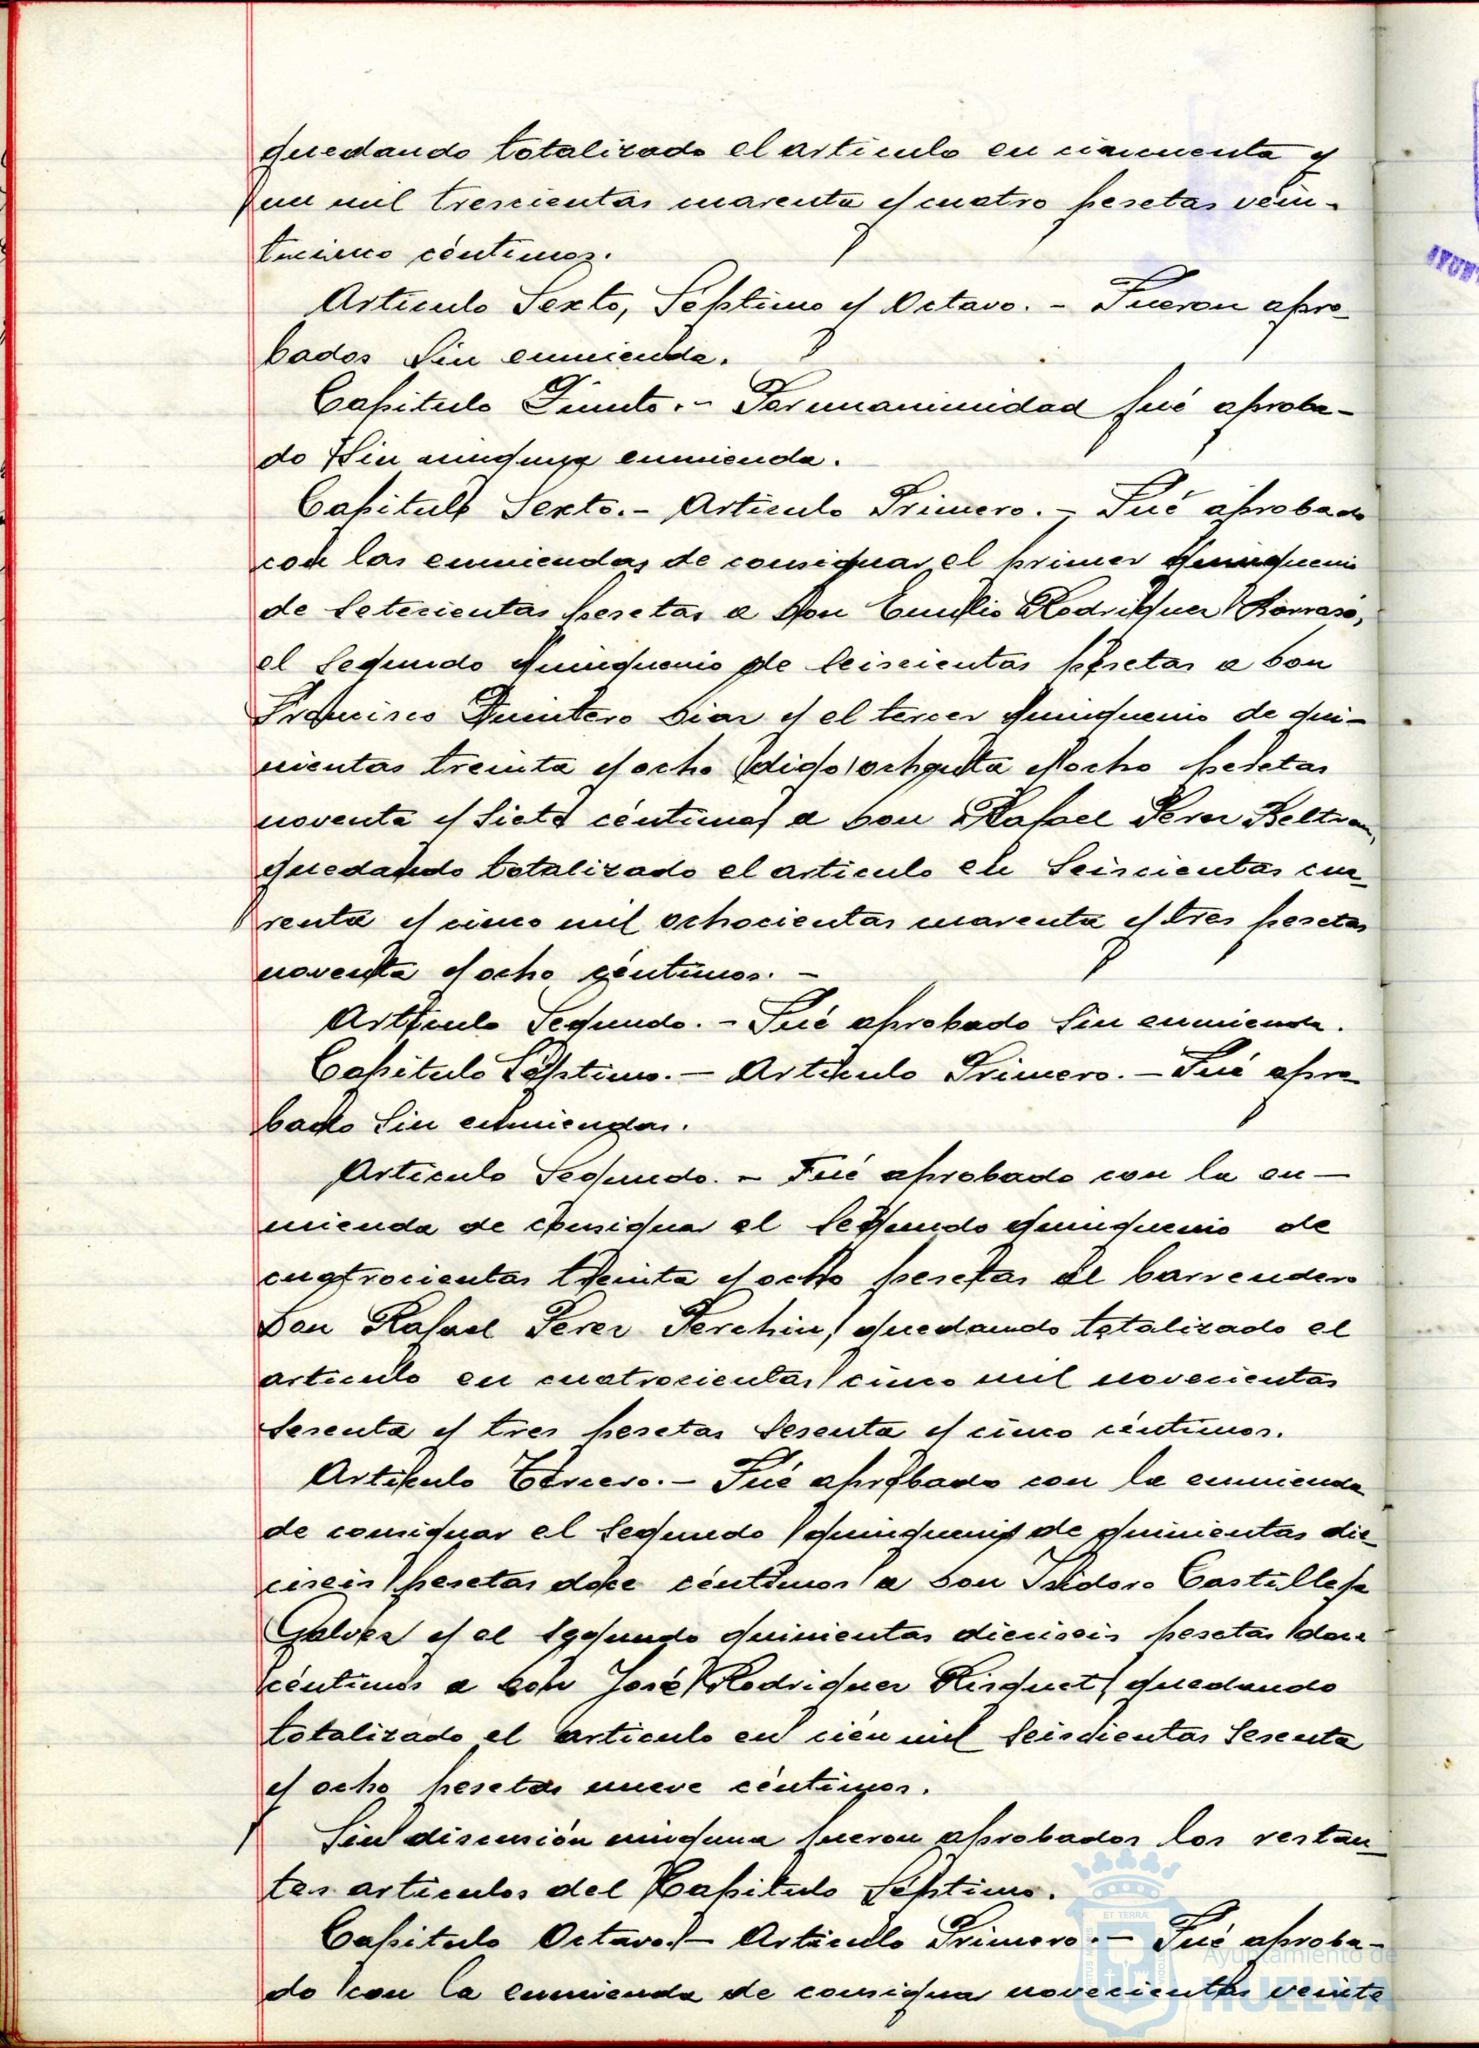 quedando totalizado el articulo en cincuenta y
un mil trescientas cuarenta y cuatro pesetas vein-
ticinco céntimos.
Articulo Sexto, Séptimo y Octavo. - Fueron apro-
bados sin enmienda.
Capitulo Quinto. - Por unanimidad fué aproba-
do sin ninguna enmienda.
Capitulo Sexto. - Articulo Primero. - Fué aprobado
con las enmiendas de consignar el primer quinquenio
de setecientas pesetas a Don Emilio Rodriguez
el segundo quinquenio de seiscientas pesetas a Don
Francisco Quintero Diaz y el tercer quinquenio de qui-
nientas treinta y ocho (digo) ochenta y ocho pesetas
noventa y siete céntimos a Don Rafael Perez Beltran,
quedando totalizado el articulo en seiscientas cua-
renta y cinco mil ochocientas cuarenta y tres pesetas
noventa y ocho céntimos. -
Articulo Segundo. - Fué aprobado sin enmienda.
Capitulo Séptimo. - Articulo Primero. - Fué apro-
bado sin enmiendas.
Articulo Segundo. - Fué aprobado con la en-
mienda de consignar el segundo quinquenio de
cuatrocientas treinta y ocho pesetas al barrendero
Don Rafael Perez Perchin, quedando totalizado el
articulo en cuatrocientas cinco mil novecientas
sesenta y tres pesetas sesenta y cinco céntimos.
Articulo Tercero. - Fué aprobado con la enmienda
de consignar el segundo quinquenio de quinientas die-
ciseis pesetas doce céntimos a Don Isidoro Castilleja
Galvez y el segundo quinientas dieciseis pesetas doce
céntimos a Don José Rodriguez Risquet, quedando
totalizado el articulo en cién mil seiscientas sesenta
y ocho pesetas nueve céntimos.
Sin discusión ninguna fueron aprobados los restan-
tes articulos del Capitulo Séptimo.
Capitulo Octavo. - Articulo Primero. - Fué aproba-
do con la enmienda de consignar novecientas veinte
Ayuntamiento de
HUELVA